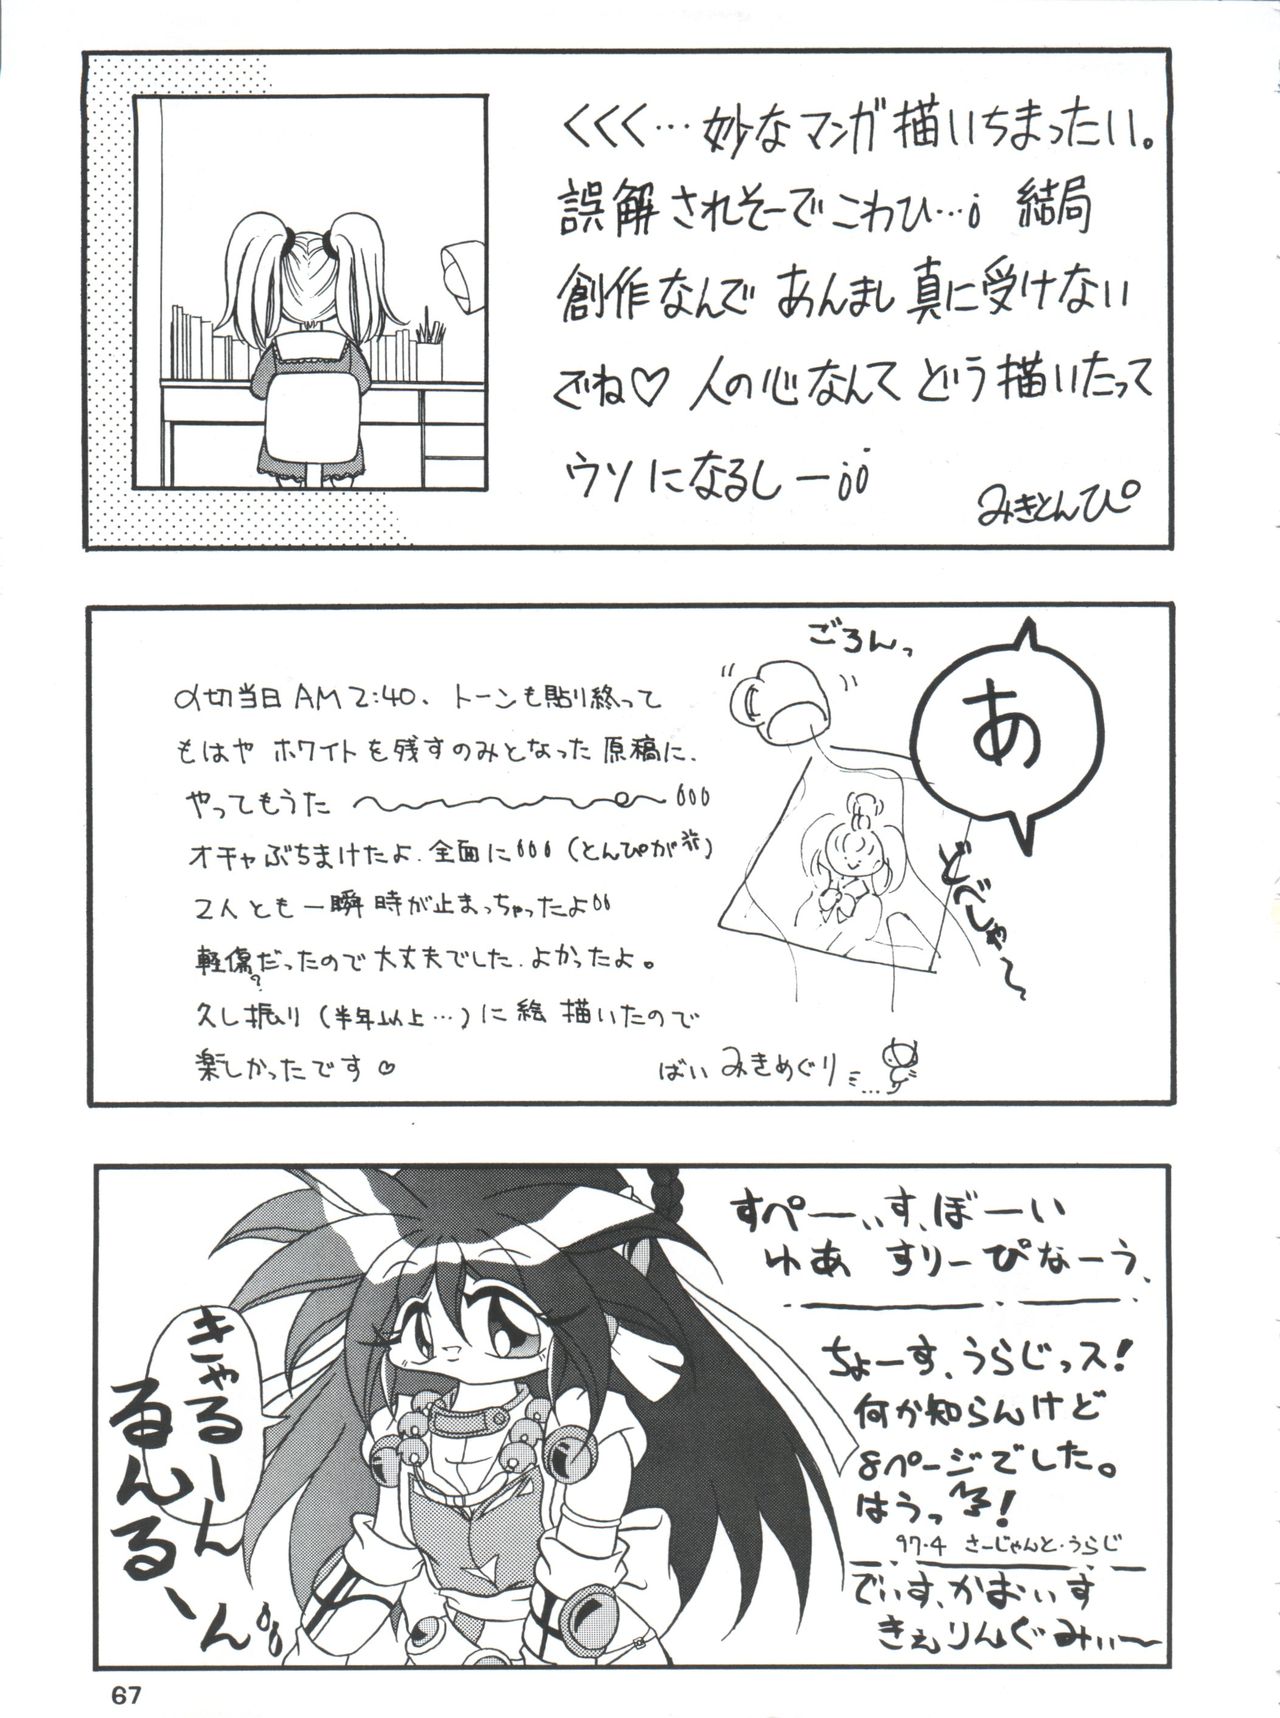 くくく…妙なマンガ描いちまったい。
誤解されそーでこわひ…¡ 結局
創作なんで あんまし真に受けない
でね♡ 人の心なんて どう描いたって
ウソになるしー¡¡
みきとんぴ
ごろんっ
あ
どべしゃ〜っ
〆切当日AM2:40、トーンも貼り終って
もはや ホワイトを残すのみとなった原稿に、
やってもうた
オチャぶちまけたよ.全面に(とんぴが)
2人とも一瞬時が止まっちゃったよ
軽傷?だったので大丈夫でした.よかったよ。
久し振り(半年以上…)に絵 描いたので
楽しかったです♡
ばい みきめぐり
すぺーぃす、ぼーい
ゆあ すりーぴなーう、
ちょーす、うらじっス!
何か知らんけど
8ページでした。
はうっ!
97.4 さーじゃんと・うらじ
でぃす、かおぃす
きぇりんぐみぃ〜
きゃるーん
るんる、ん
67